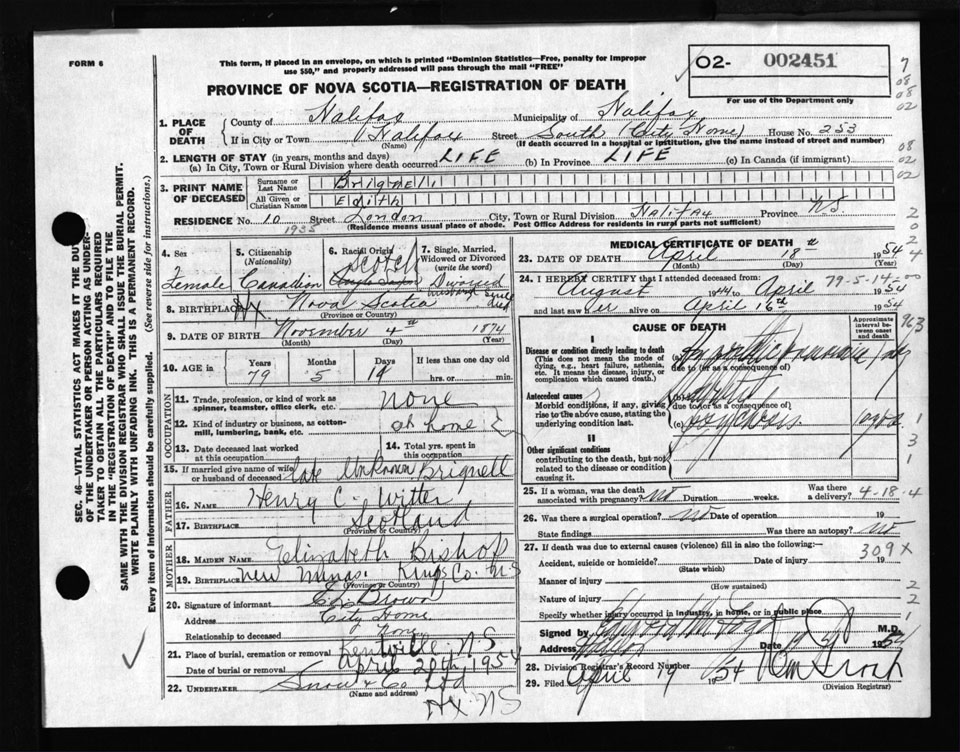 FORM 6
This form, if placed in an envelope, on which is printed "Dominion Statistics—Free, penalty for improper
use $50," and properly addressed will pass through the mail "FREE"
02- 002451
For use of the Department only
PROVINCE OF NOVA SCOTIA—REGISTRATION OF DEATH
1. PLACE OF DEATH
County of Halifax Municipality of Halifax
If in City or Town Halifax Street South (City Home) House No. 253
(Name) (If death occurred in a hospital or institution, give the name instead of street and number)
2. LENGTH OF STAY (in years, months and days)
(a) In City, Town or Rural Division where death occurred LIFE (b) In Province LIFE (c) In Canada (if immigrant)
3. PRINT NAME OF DECEASED
Surname or Last Name Brignell
All Given or Christian Names Edith
RESIDENCE No. 10 Street London City, Town or Rural Division Halifax Province N.S.
1935 (Residence means usual place of abode. Post Office Address for residents in rural parts not sufficient)
4. Sex Female
5. Citizenship (Nationality) Canadian
6. Racial Origin Scotch
7. Single, Married, Widowed or Divorced (write the word) Divorced
8. BIRTHPLACE Nova Scotia
(Province or Country)
9. DATE OF BIRTH November 4th 1874
(Month) (Day) (Year)
10. AGE in Years 79 Months 5 Days 14 If less than one day old
hrs. or min.
OCCUPATION
11. Trade, profession, or kind of work as spinner, teamster, office clerk, etc. none
12. Kind of industry or business, as cotton-mill, lumbering, bank, etc. at home
13. Date deceased last worked at this occupation
14. Total yrs. spent in this occupation
15. If married give name of wife or husband of deceased late Unknown Brignell
FATHER
16. NAME Henry C. Witter
17. BIRTHPLACE Scotland
(Province or Country)
MOTHER
18. MAIDEN NAME Elizabeth Bishop
19. BIRTHPLACE New Minas Kings Co. N S
(Province or Country)
20. Signature of informant Brown
Address City Home
Relationship to deceased
21. Place of burial, cremation or removal Kentville, N S
Date of burial or removal April 20th, 1954
22. UNDERTAKER Snow & Co Ltd
(Name and address)
Hx. NS
MEDICAL CERTIFICATE OF DEATH
23. DATE OF DEATH April 18th 1954
(Month) (Day) (Year)
24. I HEREBY CERTIFY that I attended deceased from 79-5-14-00
August 1944 to April 1954
and last saw her alive on April 16th 1954
CAUSE OF DEATH
Approximate interval between onset and death
963
I
Disease or condition directly leading to death
(This does not mean the mode of dying, e.g., heart failure, asthenia, etc. It means the disease, injury, or complication which caused death.)
due to (or as a consequence of)
Antecedent causes
Morbid conditions, if any, giving rise to the above cause, stating the underlying condition last.
(b)
due to (or as a consequence of)
(c)
II
Other significant conditions
contributing to the death, but not related to the disease or condition causing it.
25. If a woman, was the death associated with pregnancy? No Duration weeks. Was there a delivery? 4-18-4
26. Was there a surgical operation? No Date of operation 19
State findings Was there an autopsy? No
27. If death was due to external causes (violence) fill in also the following:—
309X
Accident, suicide or homicide? Date of injury 19
(State which)
Manner of injury
(How sustained)
Nature of injury
Specify whether injury occurred in industry, in home, or in public place
Signed by M.D.
Address Date 1954
28. Division Registrar's Record Number
29. Filed April 19 1954
(Division Registrar)
SEC. 46—VITAL STATISTICS ACT MAKES IT THE DUTY
OF THE UNDERTAKER OR PERSON ACTING AS UNDER-
TAKER TO OBTAIN ALL THE PARTICULARS REQUIRED
IN THE "REGISTRATION OF DEATH" AND TO FILE THE
SAME WITH THE DIVISION REGISTRAR WHO SHALL ISSUE THE BURIAL PERMIT.
WRITE PLAINLY WITH UNFADING INK. THIS IS A PERMANENT RECORD.
Every item of information should be carefully supplied. (See reverse side for instructions.)